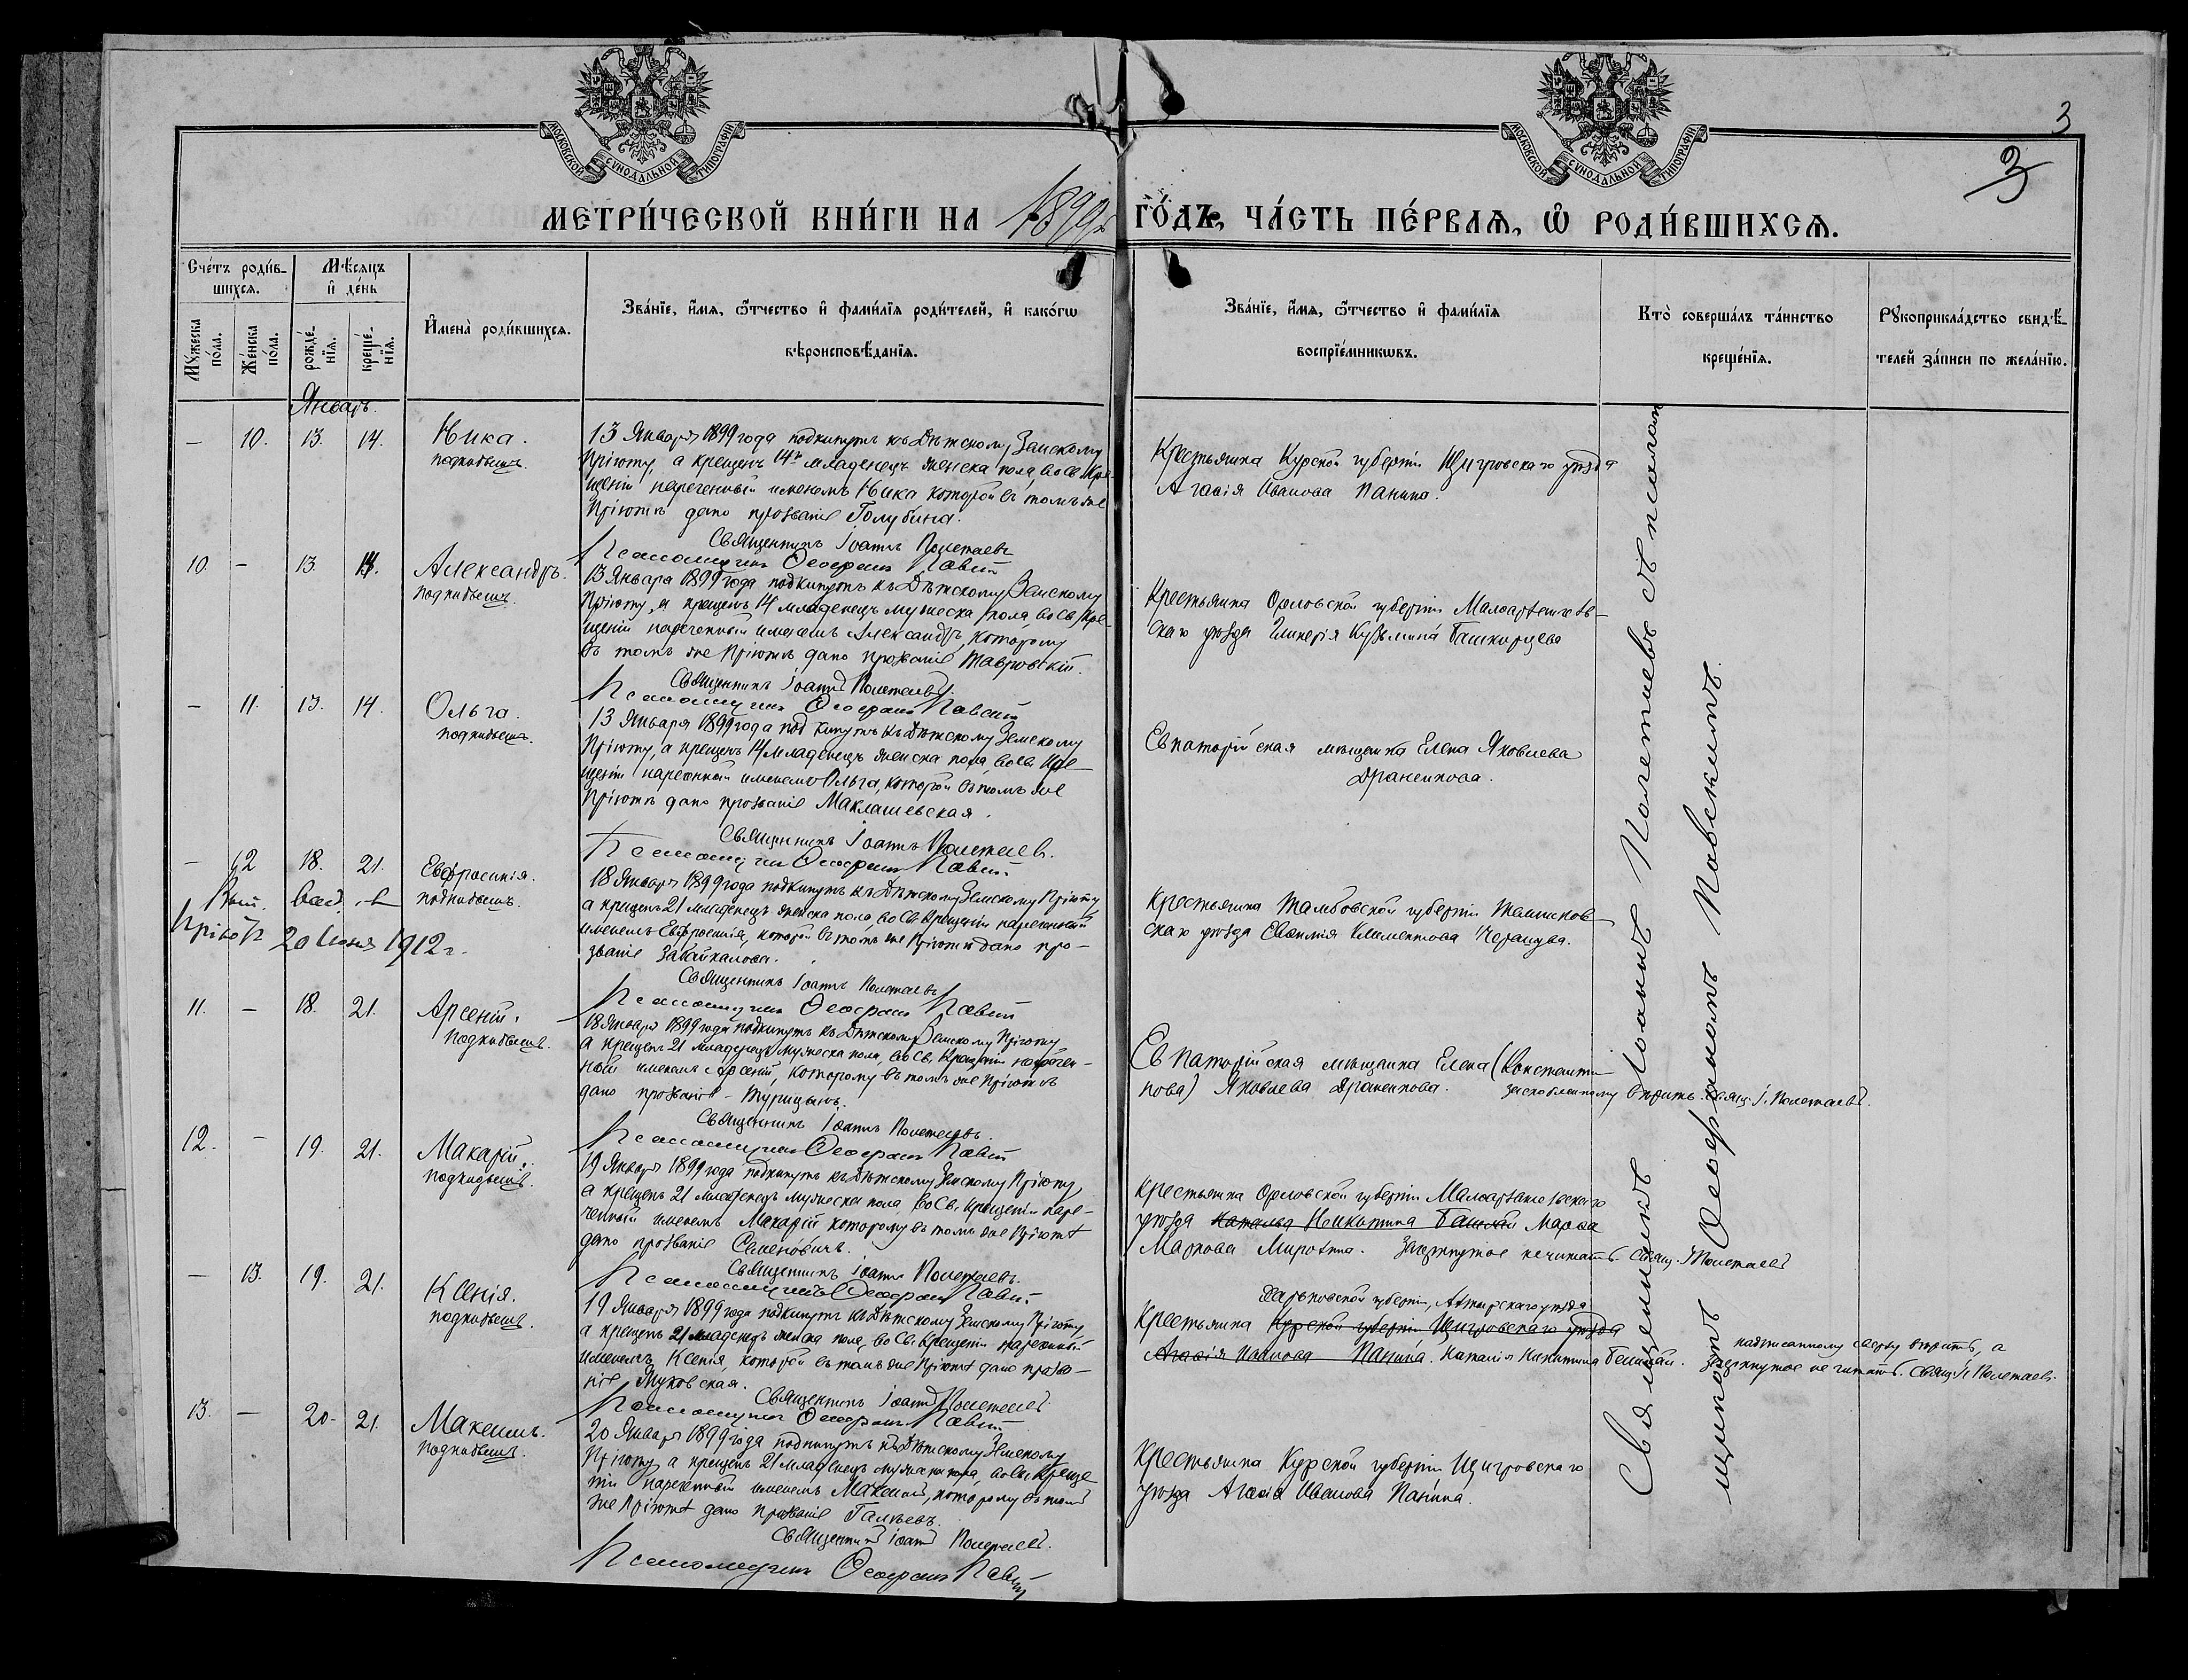 МОСКОВСКОЙ СѴНОДАЛЬНОЙ ТИПОГРАФІИ
МОСКОВСКОЙ СѴНОДАЛЬНОЙ ТИПОГРАФІИ
3
3
МЕТРИ́ЧЕСКОЙ КНИ́ГИ НА 1899 ГО́ДЪ, ЧА́СТЬ ПЕ́РВАѦ, Ѡ РОДИ́ВШИХСѦ.
Сче́тъ роди́в-
шихсѧ.
Мѣ́сѧцъ
и де́нь
Мꙋ́жеска по́ла.
Же́нска по́ла.
рожде́-
нїѧ.
креще́-
нїѧ.
Имена̀ роди́вшихсѧ.
Зва́нїе, и́мѧ, ѻ́тчество и фами́лїѧ роди́телей, и како́гѡ
вѣроисповѣ́данїѧ.
Зва́нїе, и́мѧ, ѻ́тчество и фами́лїѧ
воспрїе́мникѡвъ.
Кто̀ соверша́лъ та́инство
креще́нїѧ.
Рꙋкоприкла́дство свидѣ́-
телей за́писи по жела́нїю.
Январь.
— 10. 13. 14. Ника.
подкидышъ.
13 Января 1899 года подкинутъ къ Дѣтскому Земскому
Пріюту, а крещенъ 14го младенецъ женска пола, во Св. Кре-
щеніи нареченный именемъ Ника которой въ томъ же
Пріютѣ дано прозваніе Голубина.
Священникъ Іоаннъ Полетаевъ
Псаломщикъ Ѳеофанъ Павскій
Крестьянка Курской губерніи Щигровскаго уѣзда
Агафія Иванова Панина.
10. — 13. 14. Александръ.
подкидышъ.
13 Января 1899 года подкинутъ къ Дѣтскому Земскому
Пріюту, а крещенъ 14 младенецъ мужеска пола, во Св. Кре-
щеніи нареченный именемъ Александръ, которому
въ томъ же Пріютѣ дано прозваніе Тавровскій.
Священникъ Іоаннъ Полетаевъ.
Псаломщикъ Ѳеофанъ Павскій
Крестьянка Орловской губерніи Малоархангель-
скаго уѣзда Гликерія Кузьмина Башкирцева
— 11. 13. 14. Ольга.
подкидышъ.
13 Января 1899 года подкинутъ къ Дѣтскому Земскому
Пріюту, а крещенъ 14 младенецъ женска пола, во Св. Кре-
щеніи нареченный именемъ Ольга, которой въ томъ же
Пріютѣ дано прозваніе Маклашевская.
Священникъ Іоаннъ Полетаевъ.
Псаломщикъ Ѳеофанъ Павскій
Евпаторійская мѣщанка Елена Яковлева
Драненкова.
— 12 18. 21. Евфросинія.
подкидышъ.
Пріютъ 20 Іюня 1912 г.
18 Января 1899 года подкинутъ къ Дѣтскому Земскому Пріюту,
а крещенъ 21 младенецъ женска пола, во Св. Крещеніи нареченный
именемъ Евфросинія, которой въ томъ же Пріютѣ дано про-
званіе Забайкалова.
Священникъ Іоаннъ Полетаевъ
Псаломщикъ Ѳеофанъ Павскій
Крестьянка Тамбовской губерніи Темников-
скаго уѣзда Евфимія Климентова
11. — 18. 21. Арсеній.
подкидышъ.
18 Января 1899 года подкинутъ къ Дѣтскому Земскому Пріюту,
а крещенъ 21 младенецъ мужеска пола, во Св. Крещеніи наречен-
ный именемъ Арсеній, которому въ томъ же Пріютѣ
дано прозваніе - Турицынъ.
Священникъ Іоаннъ Полетаевъ.
Псаломщикъ Ѳеофанъ Павскій
Евпаторійская мѣщанка Елена (Константи-
нова) Яковлева Драненкова. заскобленному вѣрить. свящ. І. Полетаевъ.
12. — 19. 21. Макарій.
подкидышъ.
19 Января 1899 года подкинутъ къ Дѣтскому Земскому Пріюту,
а крещенъ 21 младенецъ мужеска пола, во Св. Крещеніи наре-
ченный именемъ Макарій которому въ томъ же Пріютѣ
дано прозваніе Семеновичъ.
Священникъ Іоаннъ Полетаевъ.
Псаломщикъ Ѳеофанъ Павскій
Крестьянка Орловской губерніи Малоархангельскаго
уѣзда Наталья Никитина Марфа
Маркова Миронина. Зачеркнутое не читать. Свящ. І Полетаевъ
— 13. 19. 21. Ксенія.
подкидышъ.
19 Января 1899 года подкинутъ къ Дѣтскому Земскому Пріюту,
а крещенъ 21 младенецъ женска пола, во Св. Крещеніи нареченный
именемъ Ксенія, которой въ томъ же Пріютѣ дано прозва-
ніе Жуковская.
Священникъ Іоаннъ Полетаевъ
Псаломщикъ Ѳеофанъ Павскій
Харьковской губерніи, Ахтырскаго уѣзда
Крестьянка Курской губерніи Щигровскаго уѣзда
Агафія Иванова Панина. Наталія Никитина
надписанному сверху вѣрить, а
зачеркнутое не читать. Свящ. І. Полетаевъ.
13. — 20. 21. Максимъ.
подкидышъ.
20 Января 1899 года подкинутъ къ Дѣтскому Земскому
Пріюту, а крещенъ 21 младенецъ мужеска пола, во Св. Креще-
ніи нареченный именемъ Максимъ, которому въ томъ
же Пріютѣ дано прозваніе Галѣевъ.
Священникъ Іоаннъ Полетаевъ.
Псаломщикъ Ѳеофанъ Павскій
Крестьянка Курской губерніи Щигровскаго
уѣзда Агафія Иванова Панина.
Священникъ Іоаннъ Полетаевъ съ псалом
щикомъ Ѳеофаномъ Павскимъ.